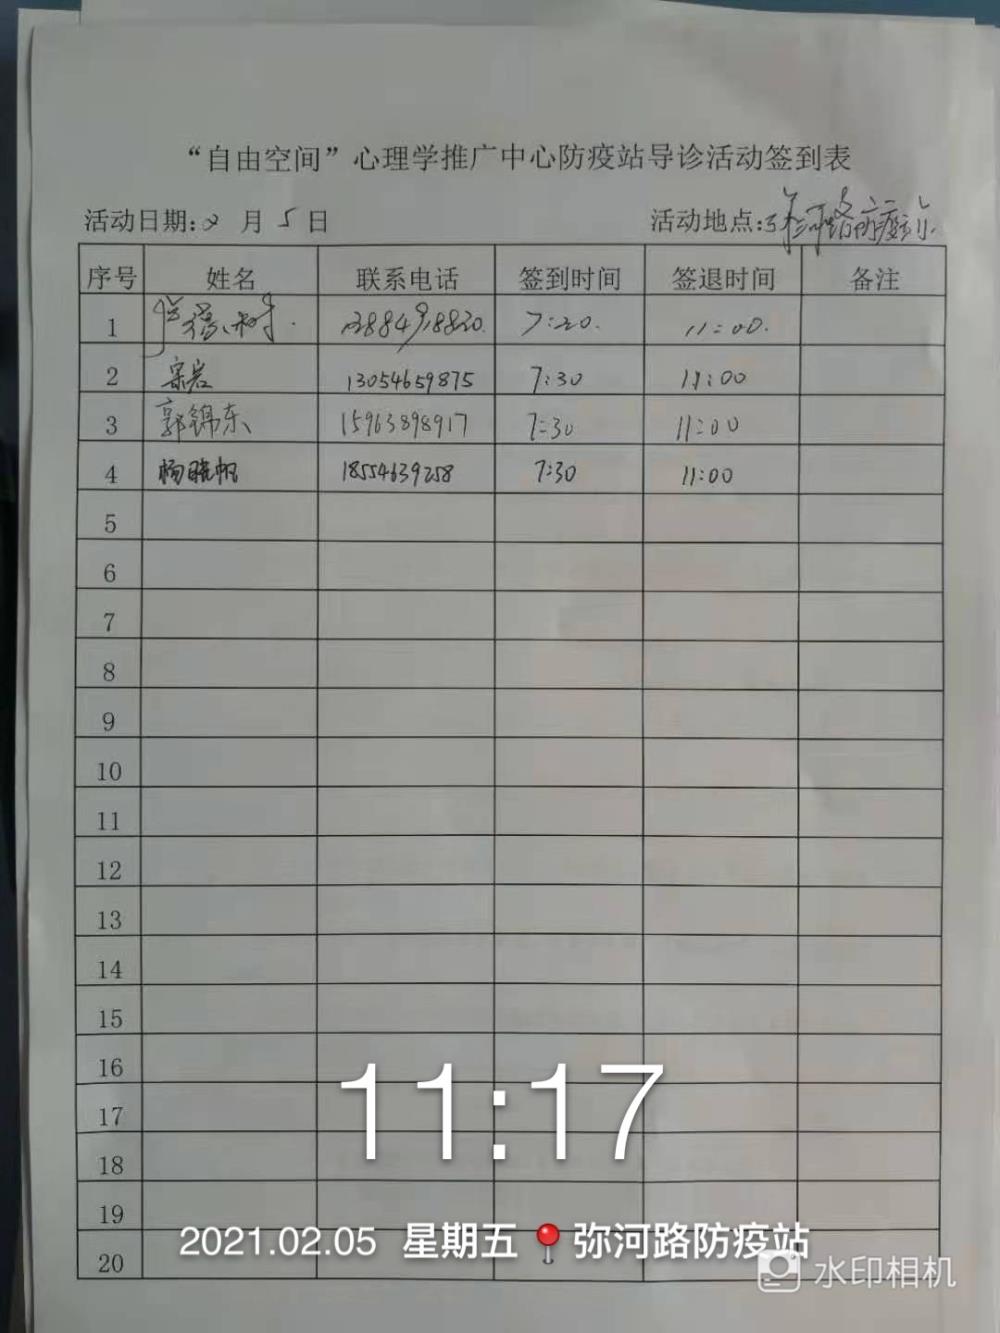 “自由空间”心理学推广中心防疫站导诊活动签到表
活动日期:2月5日 活动地点:弥河路防疫站
序号 姓名 联系电话 签到时间 签退时间 备注
1 7:20. 11:00.
2 宗岩 13054659875 7:30 11:00
3 郭锦东 15963898917 7:30 11:00
4 杨晓帆 18554639258 7:30 11:00
5
6
7
8
9
10
11
12
13
14
15
16
17
18
19
20
11:17
2021.02.05 星期五 弥河路防疫站
水印相机